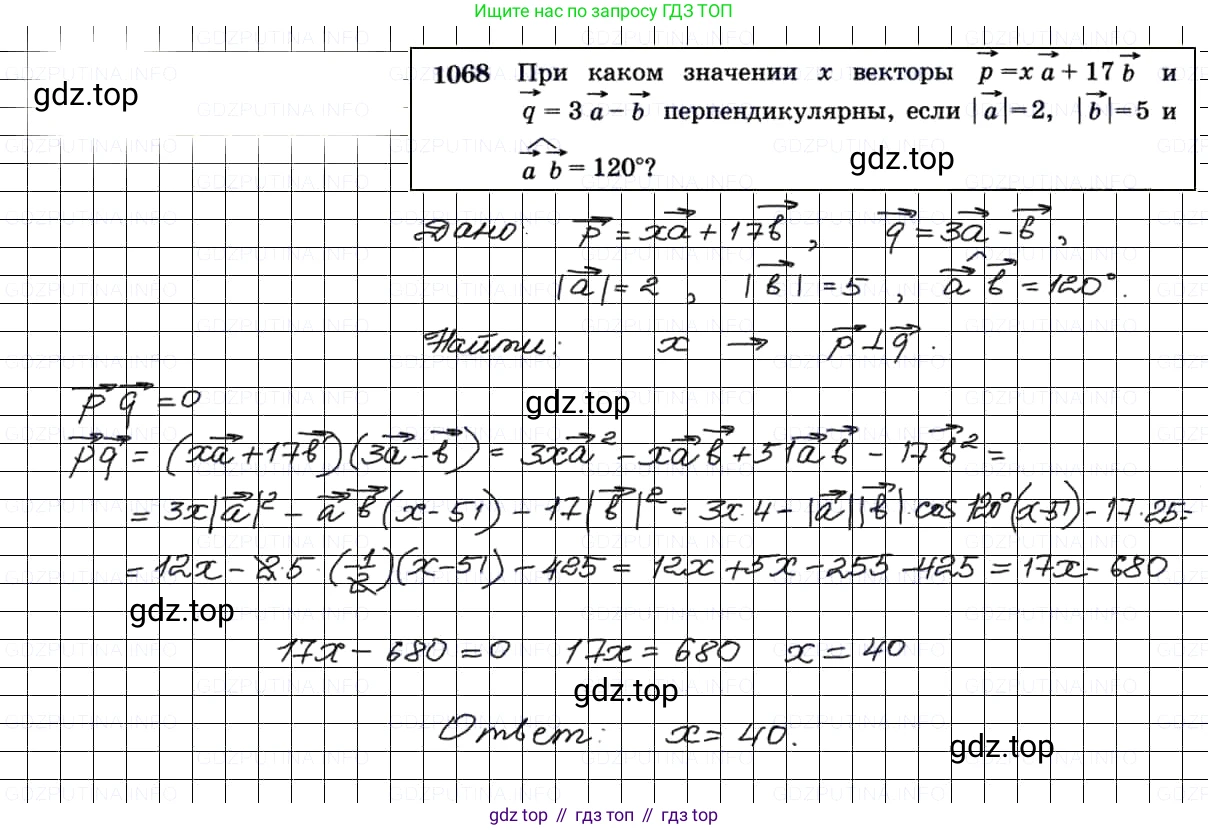 Ищите нас по запросу ГДЗ ТОП
gdz.top
1068 При каком значении x векторы p⃗ =x a⃗ + 17 b⃗ и
q⃗ = 3 a⃗ − b⃗ перпендикулярны, если |a⃗|=2, |b⃗|=5 и
a⃗ b⃗ = 120°?
gdz.top
Дано: p⃗ = xa⃗ + 17b⃗ , q⃗ = 3a⃗ − b⃗ ,
|a⃗| = 2 , |b⃗| = 5 , a⃗ ^ b⃗ = 120°.
Найти: x → p⃗ ⊥ q⃗ .
p⃗ q⃗ = 0
gdz.top
p⃗q⃗ = (xa⃗ + 17b⃗)(3a⃗ − b⃗) = 3xa⃗² − xa⃗b⃗ + 51a⃗b⃗ − 17b⃗² =
= 3x|a⃗|² − a⃗b⃗(x − 51) − 17|b⃗|² = 3x·4 − |a⃗||b⃗|·cos 120°(x−51) − 17·25 =
= 12x − 2·5·(−1/2)(x − 51) − 425 = 12x + 5x − 255 − 425 = 17x − 680
gdz.top
17x − 680 = 0 17x = 680 x = 40
gdz.top
Ответ: x = 40.
gdz.top
gdz top // гдз топ // gdz top